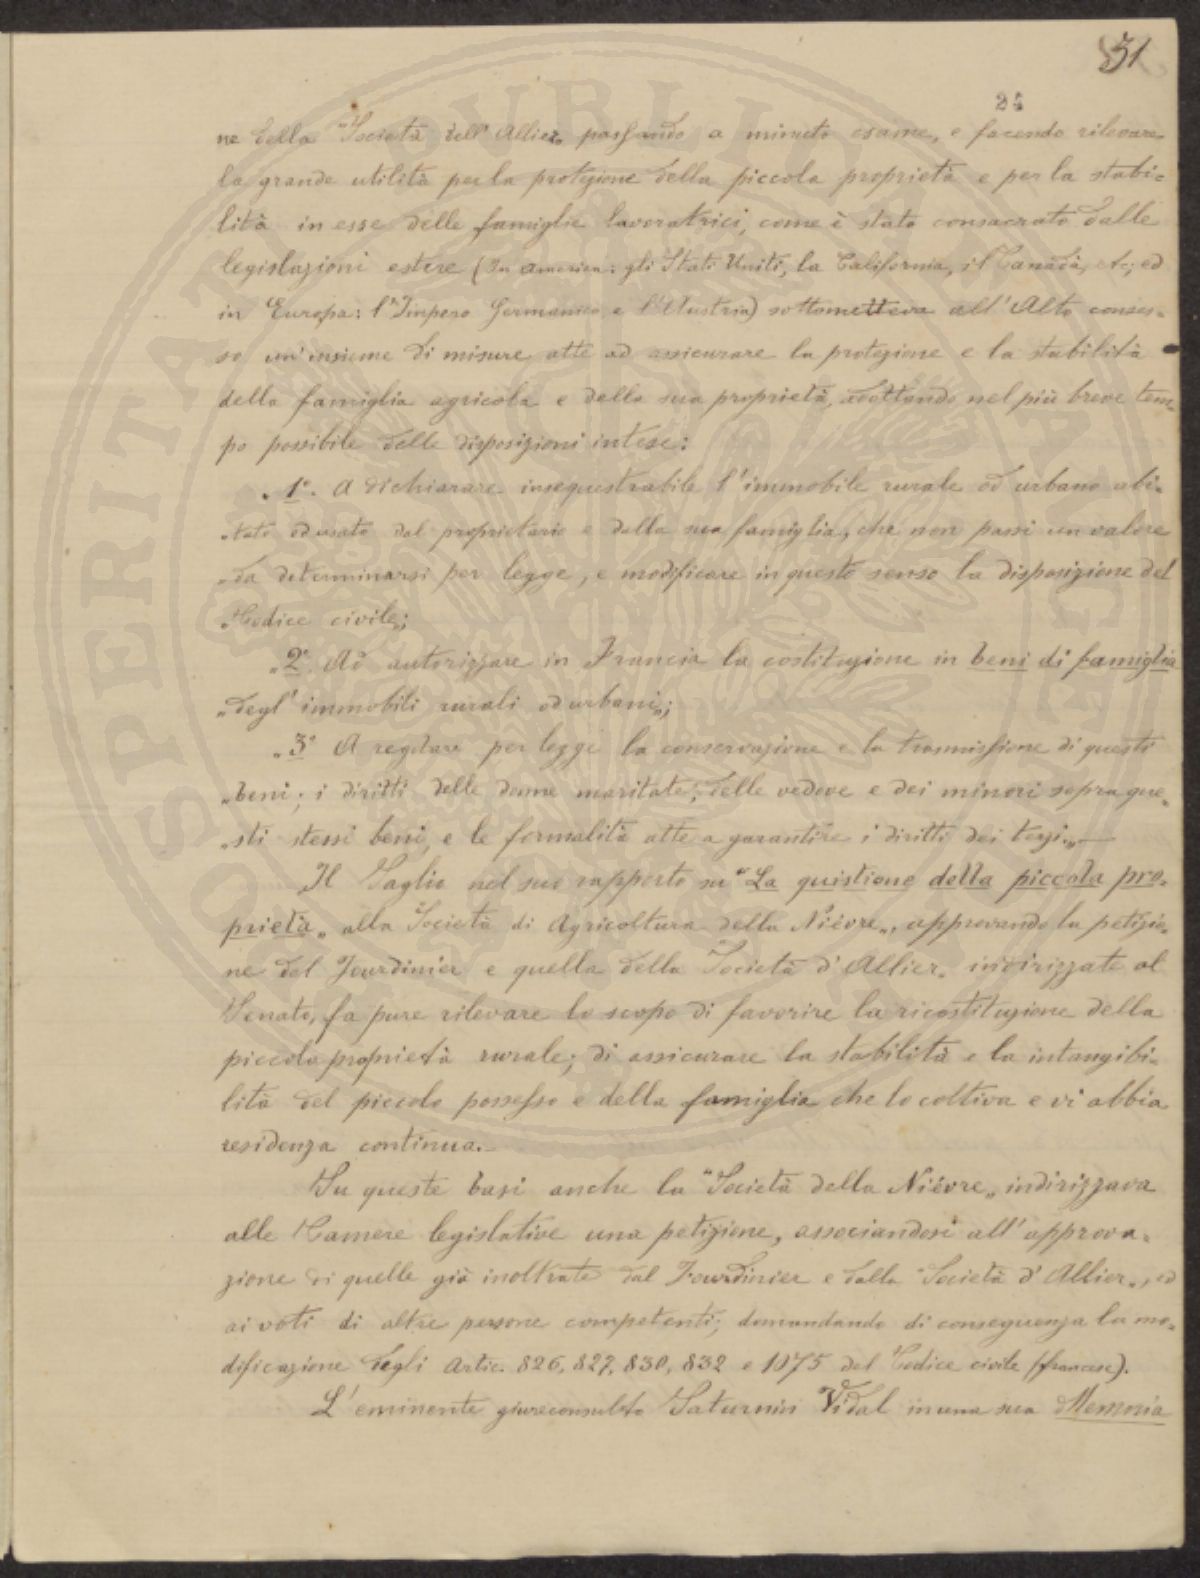 31
25
ne della "Società dell'Allier„ passando a minuto esame, e facendo rilevare
la grande utilità per la protezione della piccola proprietà e per la stabi-
lità in esse delle famiglie lavoratrici, come è stato consacrato dalle
legislazioni estere (In America: gli Stati Uniti, la California, il Canadà, etc; ed
in Europa: l'Impero Germanico e l'Austria) sottometteva all'Alto conses-
so un'insieme di misure atte ad assicurare la protezione e la stabilità
della famiglia agricola e della sua proprietà, adottando nel più breve tem-
po possibile delle disposizioni intese:
„1°. A dichiarare insequestrabile l'immobile rurale od urbano abi-
„tato od usato dal proprietario e dalla sua famiglia, che non passi un valore
„da determinarsi per legge, e modificare in questo senso la disposizione del
„Codice civile;
„2°. Ad autorizzare in Francia la costituzione in beni di famiglia
„degl'immobili rurali od urbani„;
„3° A regolare per legge la conservazione e la trasmissione di questi
„beni; i diritti delle donne maritate, delle vedove e dei minori sopra que-
„sti stessi beni, e le formalità atte a garantire i diritti dei terzi.„—
Il Taglio nel suo rapporto su "La quistione della piccola pro-
prietà„ alla "Società di Agricoltura della Niévre„, approvando la petizio-
ne del Jourdinier e quella della "Società d'Allier„ indirizzate al
Senato, fa pure rilevare lo scopo di favorire la ricostituzione della
piccola proprietà rurale; di assicurare la stabilità e la intangibi-
lità del piccolo possesso e della famiglia che lo coltiva e vi abbia
residenza continua.—
Su queste basi anche la "Società della Niévre„ indirizzava
alle Camere legislative una petizione, associandosi all'approva-
zione di quelle già inoltrate dal Jourdinier e dalla "Società d'Allier„, ed
ai voti di altre persone competenti; domandando di conseguenza la mo-
dificazione degli Artic. 826, 827, 830, 832 e 1075 del Codice civile (francese).
L'eminente giureconsulto Saturnin Vidal in una sua Memoria